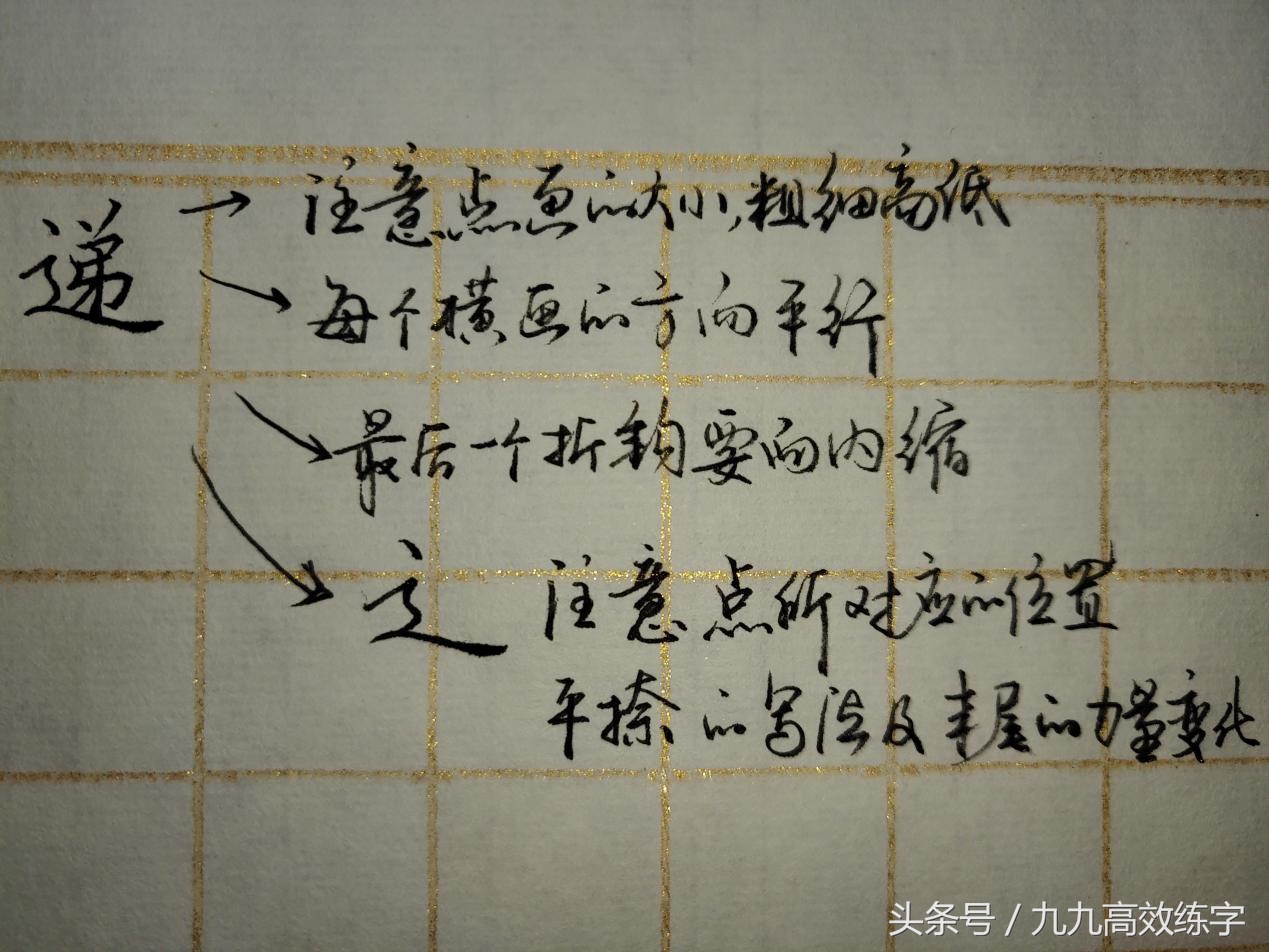 递 → 注意点画的大小,粗细高低
→ 每个横画的方向平行
→ 最后一个折钩要向内缩
→ 辶 注意点所对应的位置
平捺的写法及末尾的力量变化
头条号 / 九九高效练字